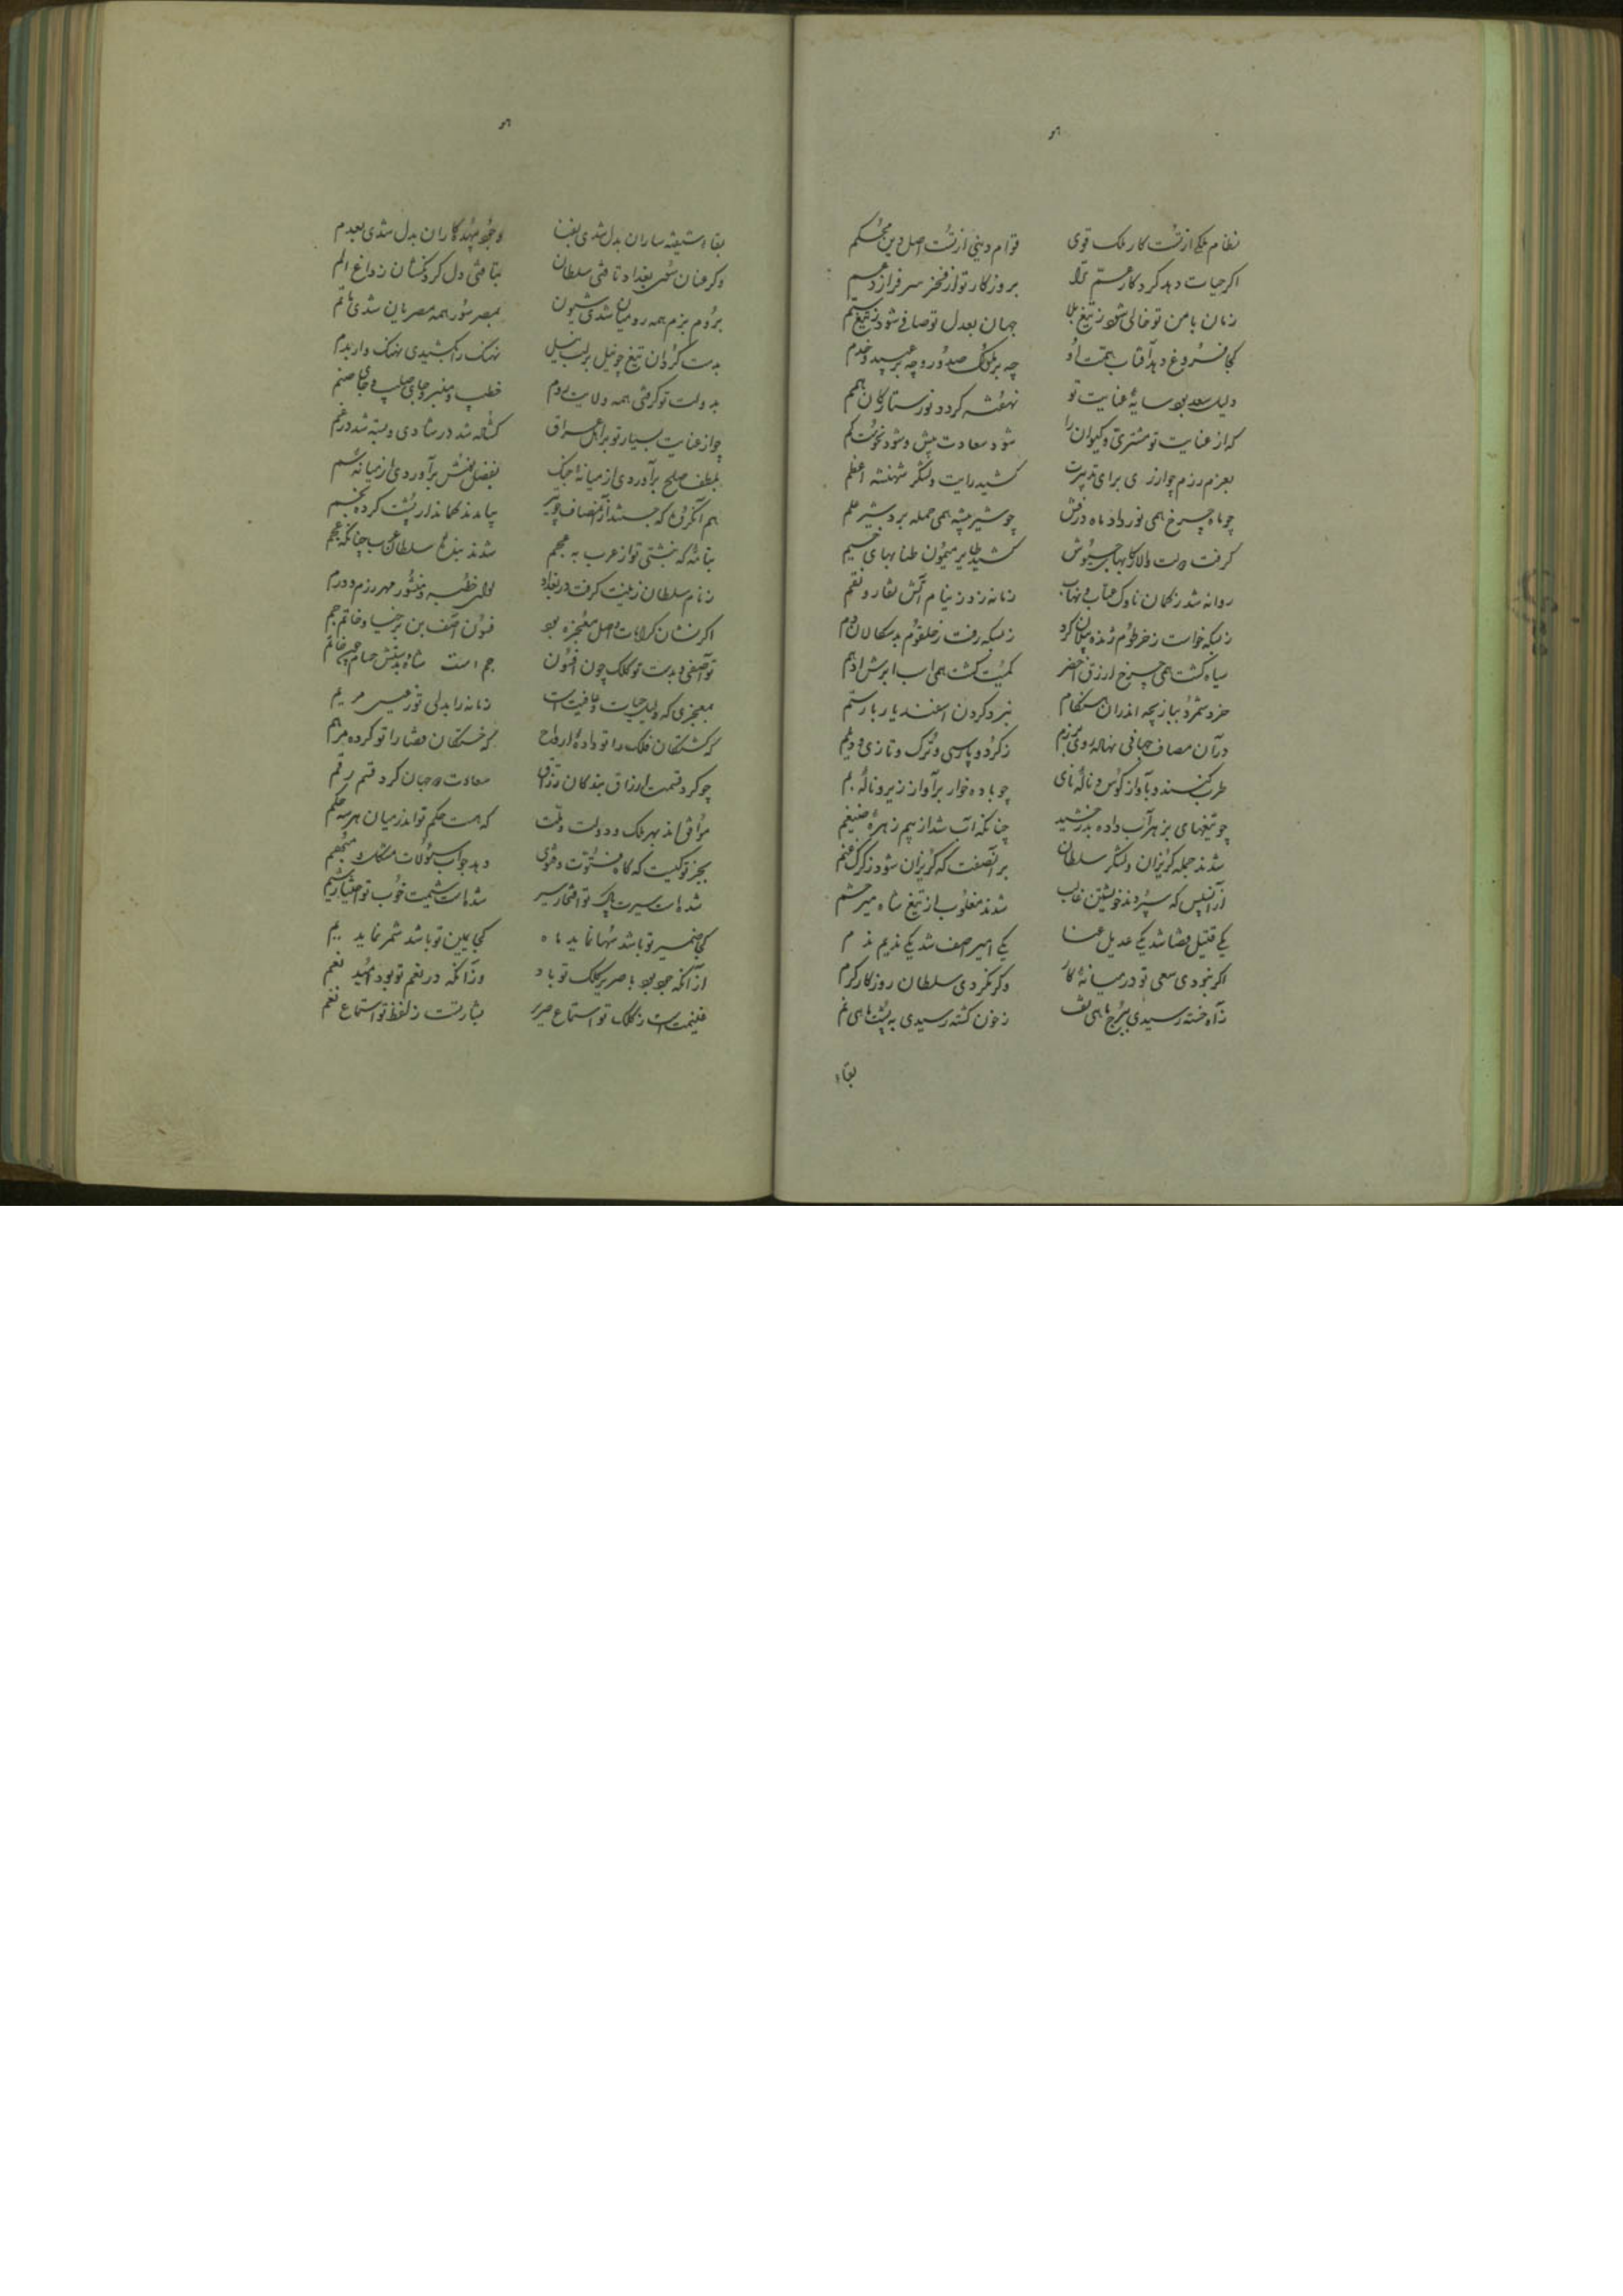 نظام ملکی از تست کار ملک قوی قوام دینی از تست اصل دین محکم
اگر حیات دهد کردکار رستم را بروزکار تو از فخر سرفرازد
زمان بامن تو خالی شود ز تیغ بلا جهان بعدل تو صافی شود ز تیغ ستم
کجا فروغ دهد آفتاب همت او چه بر ملوک صدور و چه بر عبید و خدم
دلیل سعد بود سایهٔ عنایت تو نهفته کردد نور ستارکان بهم
که از عنایت تو مشتری و کیوان را شود سعادت بیش و شود نحوست کم
بعزم رزم چو از ری برای تدبیرت کشید رایت و لشکر شهنشه اعظم
چو ماه چرخ همی نور داد ماه درفش چو شیر بیشه همی حمله برد شیر علم
کرفت دولت والا رکابهای جیوش کشید طایر میمون طنابهای خیم
روانه شد ز کمان ناوک عتاب و نهاب زمانه زد ز نیام آتش نقار و نقم
ز بسکه خواست ز خرطوم ژنده پیلان کرد ز بسکه رفت ز حلقوم بدسکالان دم
سیاه کشت همی چرخ ازرق اخضر کمیت کشت همی اسب ابرش ادهم
خرد شمرد ببازیچه اندران هنکام نبرد کردن اسفندیار با رستم
در آن مصاف جهانی نهاده روی برزم ز کرد و پارسی و ترک و تازی و دیلم
طرب کننده بآواز کوس و نالهٔ نای چو باده خوار بر آواز زیر و نالهٔ بم
چو تیغهای بزهر آب داده بدرخشید چنانکه آب شد از بیم زهرهٔ ضیغم
شدند جمله کریزان و لشکر سلطان بر آنصفت که کریزان شود ز کرک غنم
از آنسپس که سپردند خویشتن غالب شدند مغلوب از تیغ شاه میر حشم
یکی قتیل قضا شد یکی عدیل عنا یکی اسیر اسف شد یکی ندیم ندم
اگر نبودی سعی تو در میانهٔ کار وگر نکردی سلطان روزکار کرم
ز آه خسته رسیدی ببرج ماهی تف ز خون کشته رسیدی به پشت ماهی نم
بقاء
بقاء شیفته ساران بدل شدی بفنا وجود مهد کاران بدل شدی بعدم
وکر عنان سوی بغداد تافتی سلطان بتافتی دل کردنکشان ز داغ الم
بروم بزم همه رومیان شدی شیون بمصر سور همه مصریان شدی ماتم
بدست کردان تیغ چو نیل بر لب نیل نهنک را بکشیدی نهنک وار بدم
بدولت تو کرفتی همه ولایت روم خطیب و منبر جای صلیب و جای صنم
چو از عنایت بسیار تو بر اهل عراق کشاده شد در شادی و بسته شد در غم
بلطف صلح برآوردی از میانهٔ جنک بفضل نوش برآوردی از میانهٔ سم
هم آنکروه که جستند از آنمصاف چو تیر بیامدند کماندار پشت کرده بخم
بنامهٔ که نبشتی تو از عرب به عجم شدند بندهٔ سلطان عرب چنانکه عجم
ز نام سلطان زینت کرفت در بغداد لوای و خطبه و منشور و مهر و رزم و درم
اکر نشان کرامات و اصل معجزه بود فسون آصف بن برخیا و خاتم جم
تو آصفی و بدست تو کلک چون افسون جم است شاه و بدستش حسام چون خاتم
بمعجزی که دلیل حیات و عافیت است زمانه را بدلی تو ز عیسی مریم
که کشتکان فلک را تو دادهٔ ارواح که خستکان قضا را تو کرده مرهم
چو کرد قسمت ارزاق بندکان رزاق سعادت دو جهان کرد قسم تو رقم
موافق اند بهم ملک و دولت و ملت که هست حکم تو اندر میان هر سه حکم
بجز تو کیست که کاه فتوت و فتوی دهد جواب سؤالات مشکل و مبهم
شده است سیرت پاک تو افتخار سیر شده است شیمت خوب تو اختیار شیم
کجا ضمیر تو باشد سها نماید ماه کجا یمین تو باشد شمر نماید یم
از آنکه جود بود با صریر کلک تو یاد وز آنکه در نعم تو بود امید نعم
غنیمت است ز کلک تو استماع صریر بشارتست ز لفظ تو استماع نعم